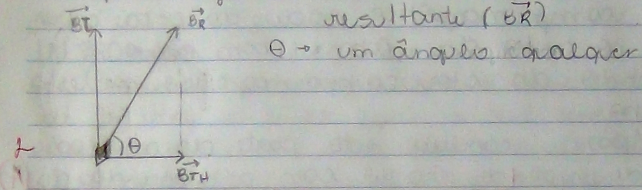 BI BR resultante (BR)
θ → um ângulo qualquer
θ
BTH